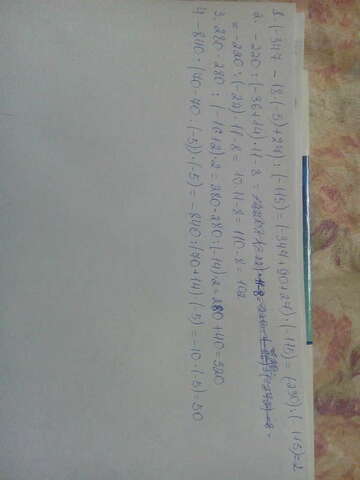 1. (-347 - 18·(-5)+27) : (-115) = (-347+90+27) : (-115) = (-230) : (-115)=2
2. -220 : (-36+14) · 11 - 8 =
= -220 : (-22) · 11 - 8 = 10·11-8 = 110-8 = 102
3. 280 - 280 : (-16+2) · 2 = 280-280 : (-14)·2 = 280+40 = 320
4. -840 : (70-70 : (-5)) · (-5) = -840 : (70+14) · (-5) = -10 · (-5) = 50